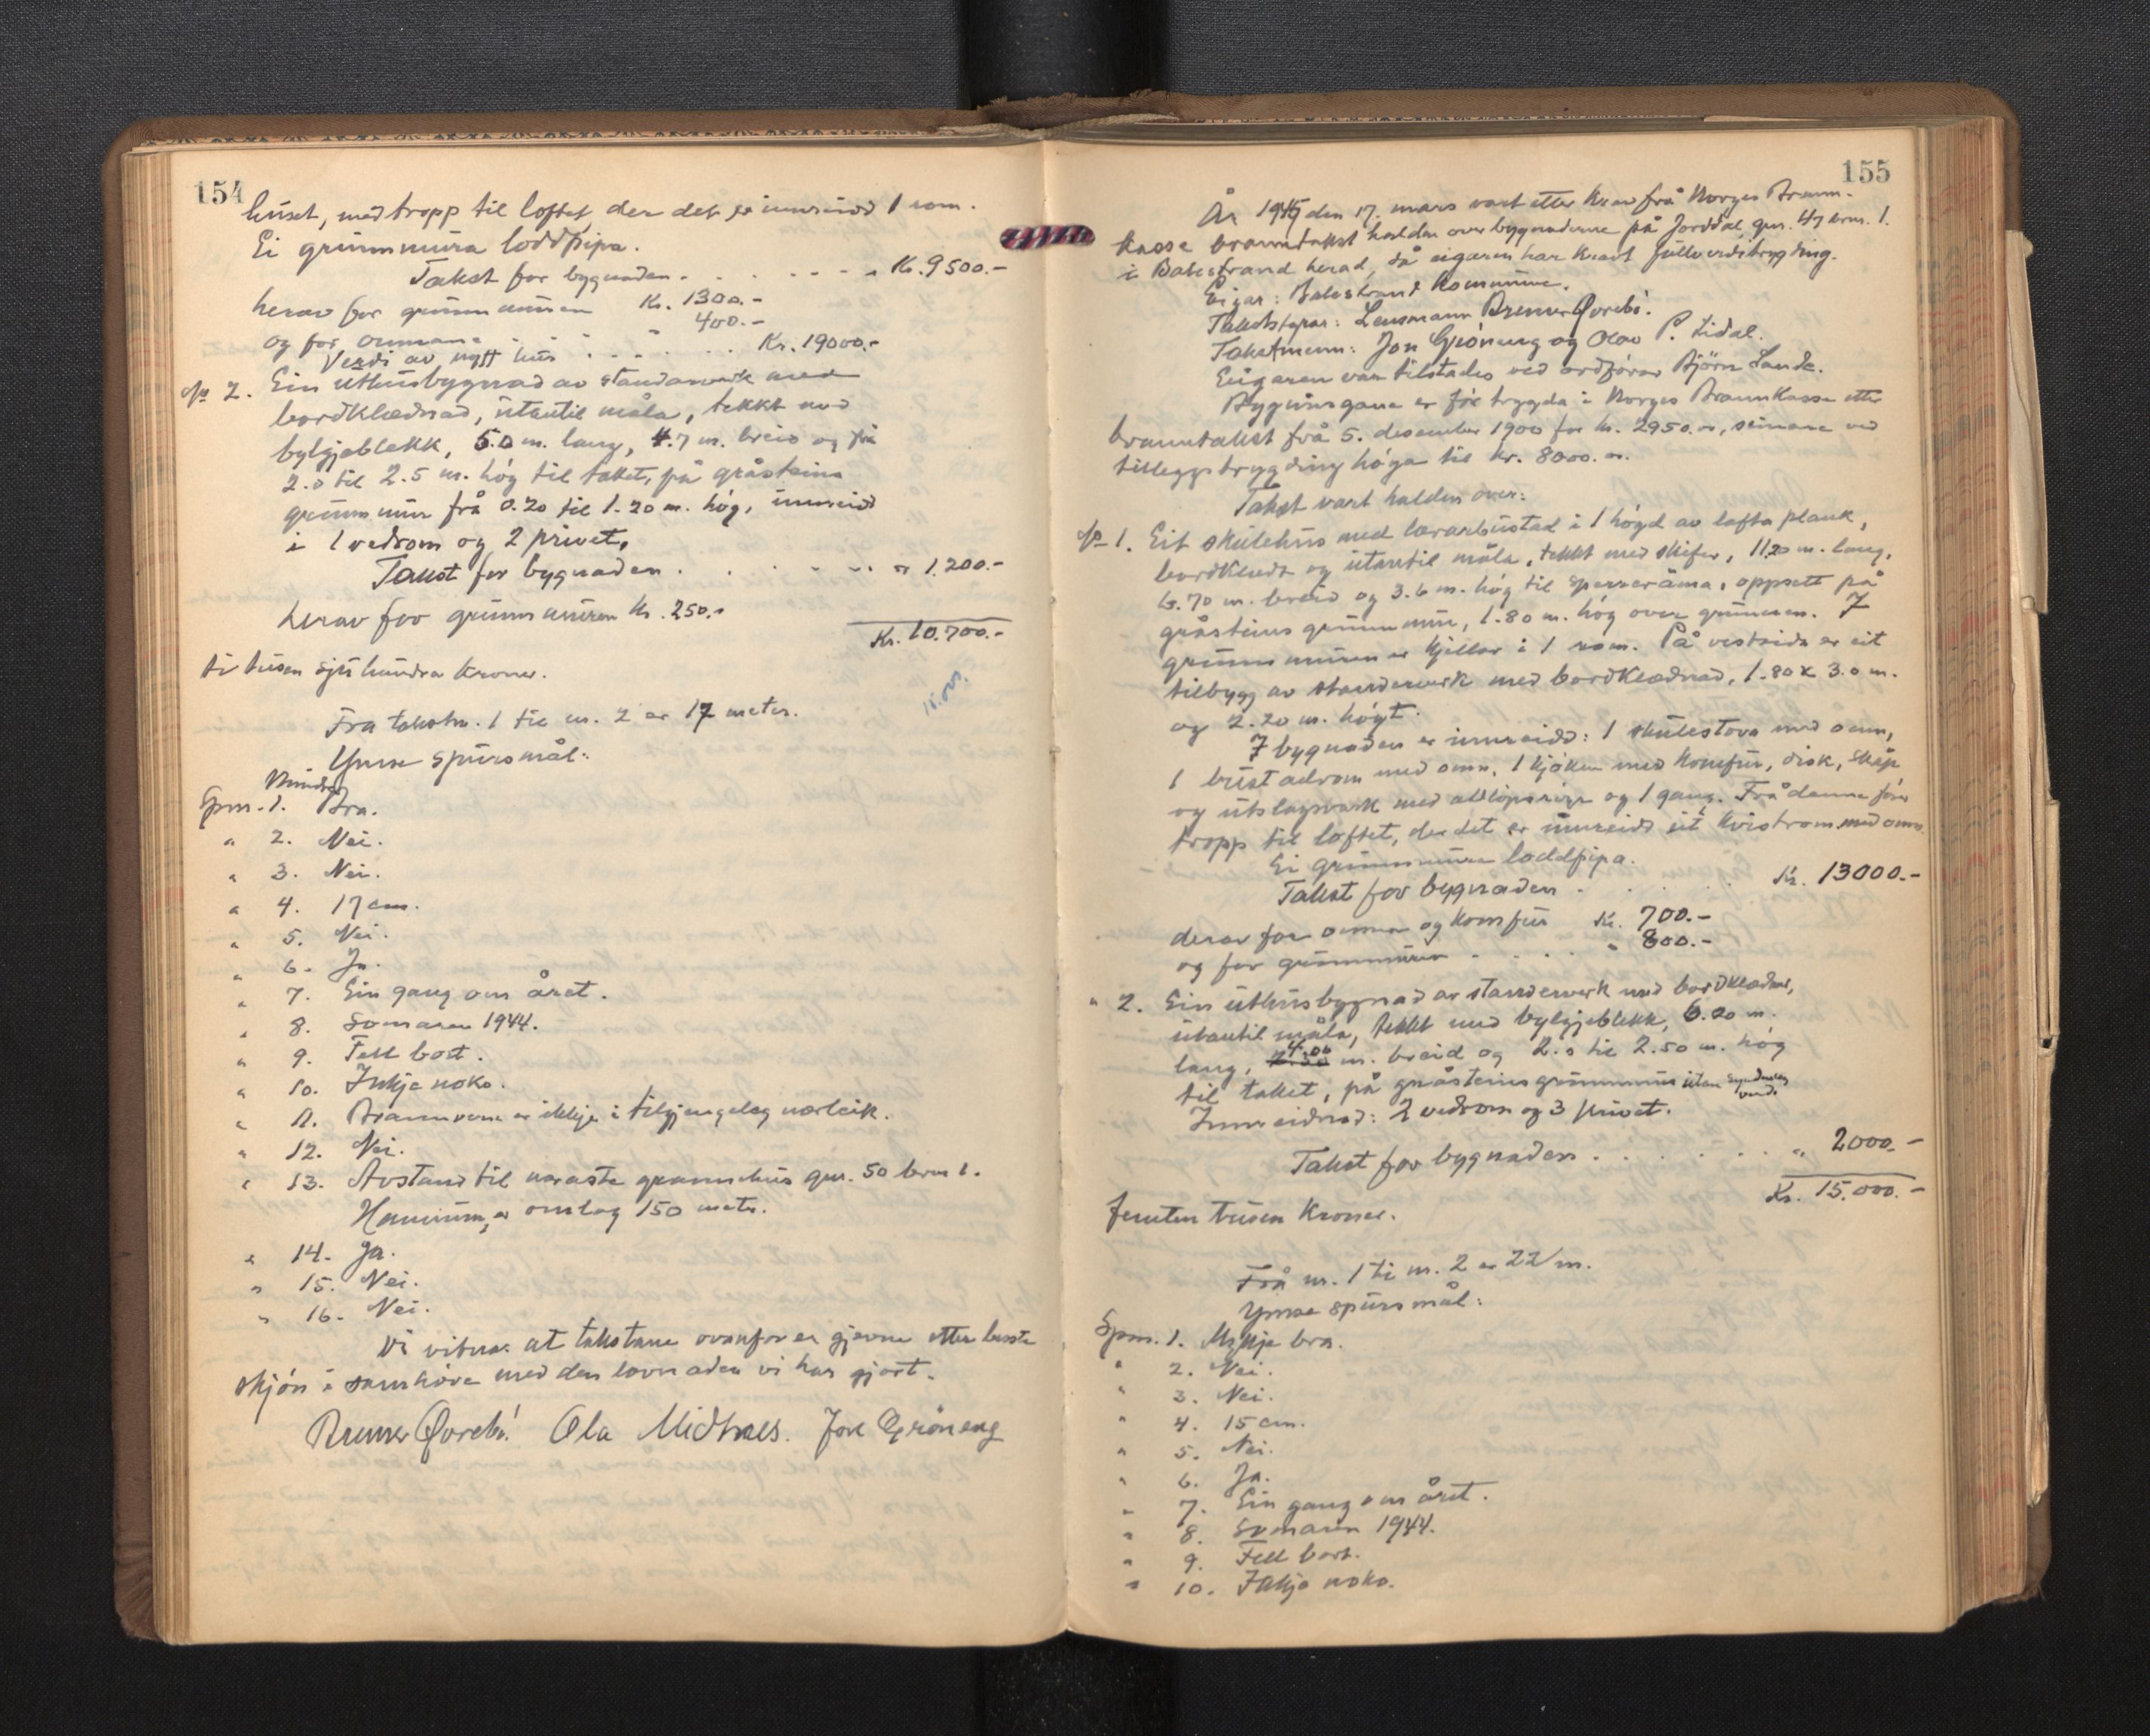 154
huset, med tropp til loftet, der det er innreidd 1 rom.
Ei grunnmura loddpipa.
Takst for bygnaden . . . . . . . Kr. 9500.-
herav for grunnmuren Kr. 1300.-
og for omnane . . . " 400.-
Verdi av nytt hus . . . . . . Kr. 19000.-
Nr 2. Ein uthusbygnad av standarverk med
bordklædnad, utantil måla, tekkt med
bylgjeblekk, 5.0 m. lang, 4.7 m. breid og frå
2.0 til 2.5 m. høg til taket, på gråsteins
grunnmur frå 0.20 til 1.20 m. høg, innreidd
i 1 vedrom og 2 privet.
Takst for bygnaden . . . . . . " 1.200.-
herav for grunnmuren Kr. 250.-
Kr. 10.700.-
ti tusen sju hundra kroner.
Fra takstnr. 1 til nr. 2 er 17 meter.
Ymse spursmål:
Mindre
Spm. 1. Bra.
" 2. Nei.
" 3. Nei.
" 4. 17 cm.
" 5. Nei.
" 6. Ja.
" 7. Ein gang om året.
" 8. Somaren 1944.
" 9. Fell bort.
" 10. Inkje noko.
" 11. Brannvern er ikkje i tilgjengeleg nærleik.
" 12. Nei.
" 13. Avstand til næraste grannehus gnr. 50 brnr 1.
er omlag 150 meter.
" 14. Ja.
" 15. Nei.
" 16. Nei.
Vi vitnar at takstane ovanfor er gjevne etter beste
skjøn i samhøve med den lovnaden vi har gjort.
Brenner Øvrebø. Ola Midtnes. Jon Grøneng
155
År 1945 den 17. mars vart etter krav frå Norges Brann-
kasse branntakst halden over bygnaderne på Jorddal, gnr. 47 brnr. 1.
i Balestrand herad, då eigaren har kravt fullverditrygding.
Eigar: Balestrand kommune.
Takststyrar: Lensmann Brenner Øvrebø.
Takstmenn: Jon Grøneng og Olav P. Lidal.
Eigaren var tilstades ved ordførar Bjørn Lande.
Bygningane er før trygda i Norges Brannkasse etter
branntakst frå 5. desember 1900 for kr. 2950.00, seinare ved
tilleggstrygding høga til kr. 8000.00.
Takst vart halden over:
Nr 1. Eit skulehus med lærarbustad i 1 høgd av lafta plank,
bordkledt og utantil måla, tekkt med skifer, 11.20 m. lang,
6.70 m. breid og 3.6 m. høg til sperreråma, oppsett på
gråsteins grunnmur, 1.80 m. høg over grunnen. I
grunnmuren er kjellar i 1 rom. På vestsida er eit
tilbygg av standerverk med bordklædnad, 1.80 x 3.0 m.
og 2.20 m. høgt.
I bygnaden er innreidd: 1 skulestova med omn,
1 bustadrom med omn, 1 kjøken med komfur, disk, skåp
og utslagsvask med avløpsrøyr og 1 gang. Frå denne fører
tropp til loftet, der det er innreidd eit kvistrom med omn.
Ei grunnmura loddpipa.
Takst for bygnaden . . . . . Kr. 13000.-
derav for omnar og komfur Kr. 700.-
og for grunnmuren . . . . " 800.-
" 2. Ein uthusbygnad av standerverk med bordklædnad,
utantil måla, tekkt med bylgjeblekk, 6.20 m.
lang, 4.00 m. breid og 2.0 til 2.50 m. høg
til taket, på gråsteinsgrunnmur utan
verdi
Innreidnad: 2 vedrom og 3 privet.
Takst for bygnaden . . . . . . . " 2000.-
Kr. 15.000.-
femten tusen kroner.
Frå nr. 1 ti nr. 2 er 22 m.
Ymse spursmål:
Spm. 1. Mykje bra.
" 2. Nei.
" 3. Nei.
" 4. 15 cm.
" 5. Nei.
" 6. Ja.
" 7. Ein gang om året.
" 8. Somaren 1944.
" 9. Fell bort.
" 10. Inkje noko.